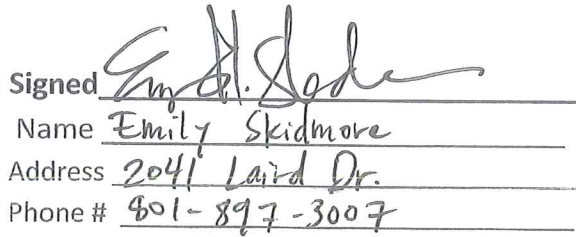 Signed
Name Emily Skidmore
Address 2041 Laird Dr.
Phone # 801-897-3007